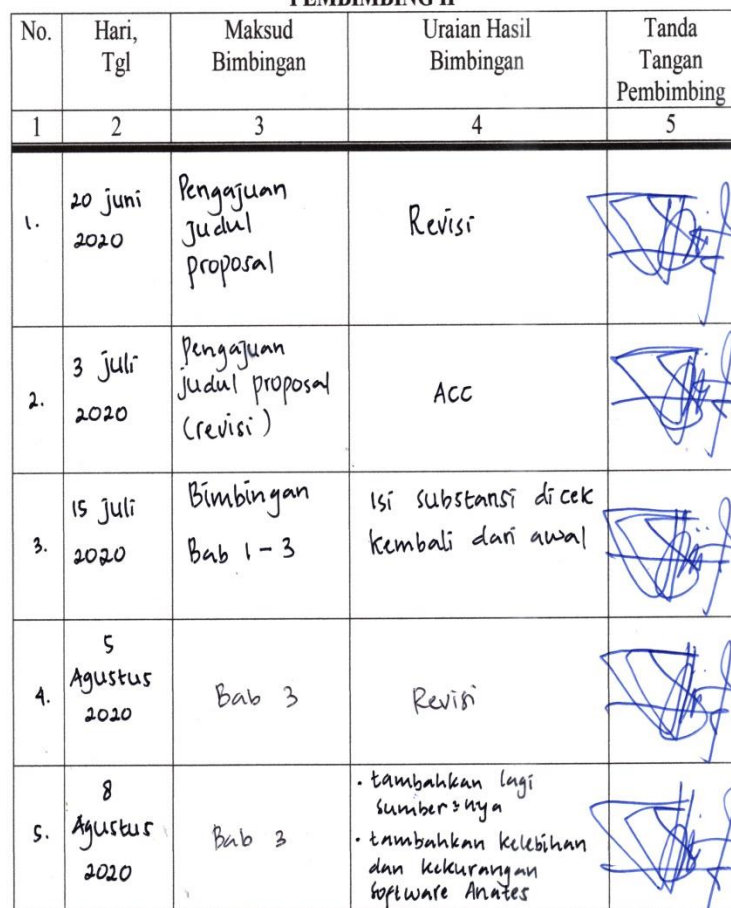 PEMBIMBING II
No.
Hari,
Tgl
Maksud
Bimbingan
Uraian Hasil
Bimbingan
Tanda
Tangan
Pembimbing
1
2
3
4
5
1.
20 juni
2020
Pengajuan
Judul
proposal
Revisi
2.
3 juli
2020
Pengajuan
judul proposal
(revisi)
ACC
3.
15 juli
2020
Bimbingan
Bab 1 - 3
Isi substansi dicek
kembali dari awal
4.
5
Agustus
2020
Bab 3
Revisi
5.
8
Agustus
2020
Bab 3
• tambahkan lagi
sumber²nya
• tambahkan kelebihan
dan kekurangan
software Anates